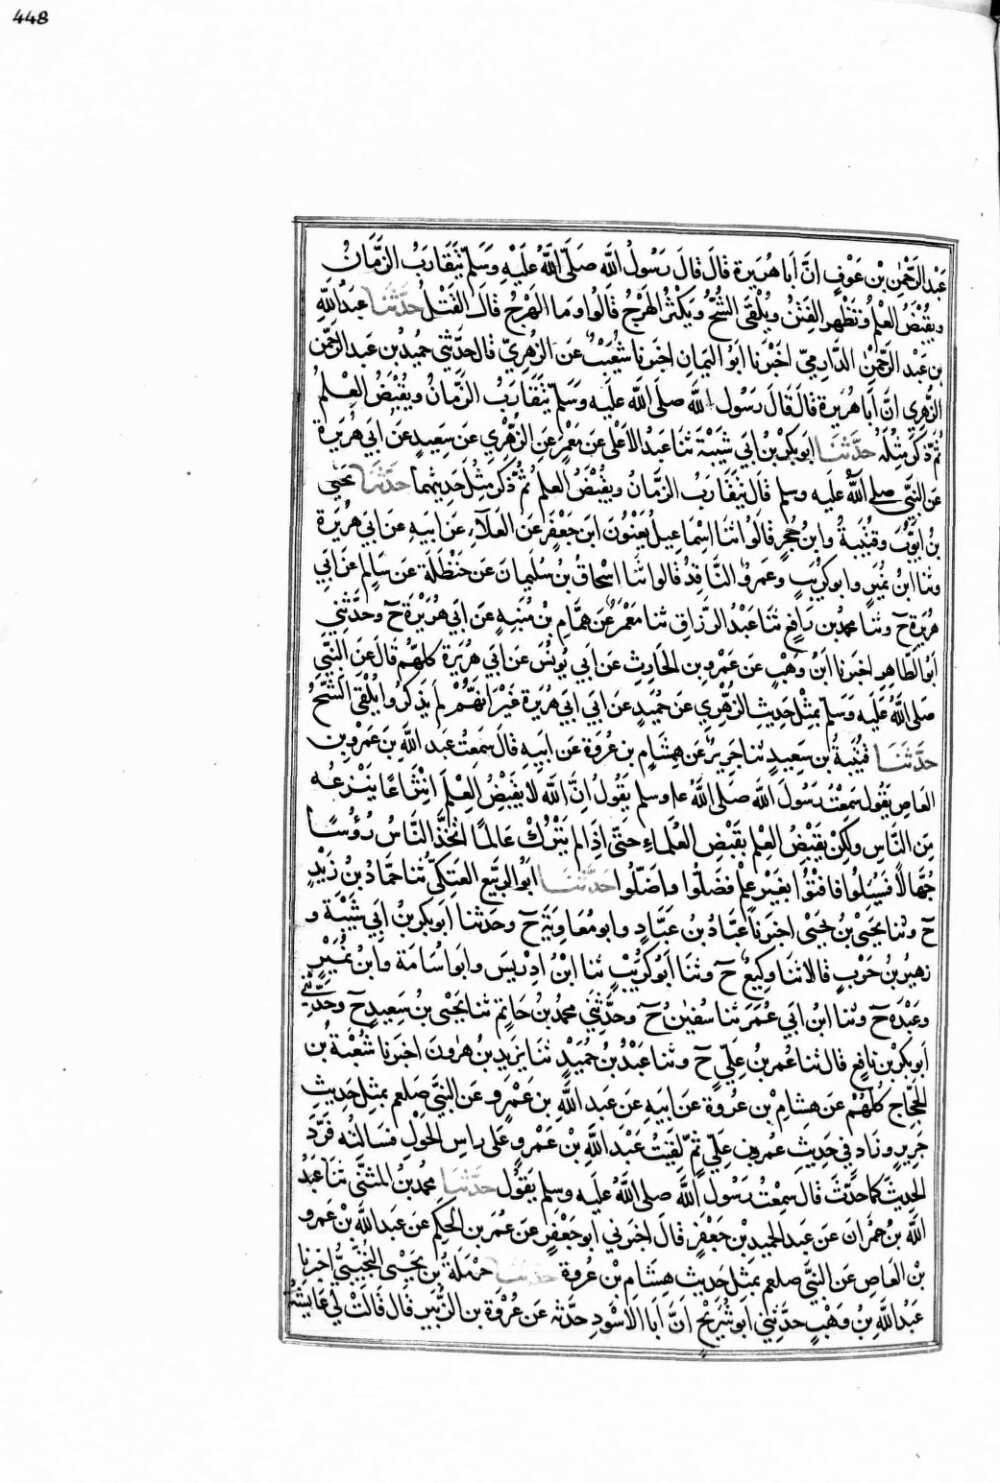 448
عبد الرحمن بن عوف ان ابا هريرة قال قال رسول الله صلى الله عليه وسلم يتقارب الزمان
ويقبض العلم وتظهر الفتن ويلقى الشح ويكثر الهرج قالوا وما الهرج قال القتل حدثنا عبد الله
بن عبد الرحمن الدارمي اخبرنا ابو اليمان اخبرنا شعيب عن الزهري قال حدثني حميد بن عبد الرحمن
الزهري ان ابا هريرة قال قال رسول الله صلى الله عليه وسلم يتقارب الزمان ويقبض العلم
ثم ذكر مثله حدثنا ابو بكر بن ابي شيبة ثنا عبد الاعلى عن معمر عن الزهري عن سعيد عن ابي هريرة
عن النبي صلى الله عليه وسلم قال يتقارب الزمان ويقبض العلم ثم ذكر مثل حديثهما حدثنا يحيى
بن ايوب وقتيبة وابن حجر قالوا ثنا اسماعيل يعنون ابن جعفر عن العلاء عن ابيه عن ابي هريرة
وثنا ابن نمير وابو كريب وعمرو الناقد قالوا ثنا اسحاق بن سليمان عن حنظلة عن سالم عن ابي
هريرة ح وثنا محمد بن رافع ثنا عبد الرزاق ثنا معمر عن همام بن منبه عن ابي هريرة ح وحدثني
ابو الطاهر اخبرنا ابن وهب عن عمرو بن الحارث عن ابي يونس عن ابي هريرة كلهم قال عن النبي
صلى الله عليه وسلم بمثل حديث الزهري عن حميد عن ابي ابي هريرة غير انهم لم يذكروا يلقى الشح
حدثنا قتيبة بن سعيد ثنا جرير عن هشام بن عروة عن ابيه قال سمعت عبد الله بن عمرو بن
العاص يقول سمعت رسول الله صلى الله علم وسلم يقول ان الله لا يقبض العلم انتزاعا ينزعه
من الناس ولكن يقبض العلم بقبض العلماء حتى اذا لم يترك عالما اتخذ الناس رؤسا
جهالا فسيلوا فافتوا بغير علم فضلوا واضلوا حدثنا ابو الربيع العتكي ثنا حماد بن زيد
ح وثنا يحيى بن يحيى اخبرنا عباد بن عباد وابو معاوية ح وحدثنا ابو بكر بن ابي شيبة و
زهير بن حرب قالا ثنا وكيع ح وثنا ابو كريب ثنا ابن ادريس وابو اسامة وابن نمير
وعبدة ح وثنا ابن ابي عمر ثنا سفين ح وحدثني محمد بن حاتم ثنا يحيى بن سعيد ح وحدثني
ابو بكر بن نافع قال ثنا عمر بن علي ح وثنا عبد بن حميد ثنا يزيد بن هرون اخبرنا شعبة بن
الحجاج كلهم عن هشام بن عروة عن ابيه عن عبد الله بن عمرو عن النبي صلعم بمثل حديث
جرير وزاد في حديث عمر بن علي ثم لقيت عبد الله بن عمرو على راس الحول فسالته فرد
الحديث كما حدث قال سمعت رسول الله صلى الله عليه وسلم يقول حدثنا محمد بن المثنى ثنا عبد
الله بن حمران عن عبد الحميد بن جعفر قال اخبرني ابو جعفر عن عمر بن الحكم عن عبد الله بن عمرو
بن العاص عن النبي صلعم بمثل حديث هشام بن عروة حدثنا حرملة بن يحيى التجيبي اخبرنا
عبد الله بن وهب حدثني ابو شريح ان ابا الاسود حدثه عن عروة بن الزبير قال قالت لي عايشة